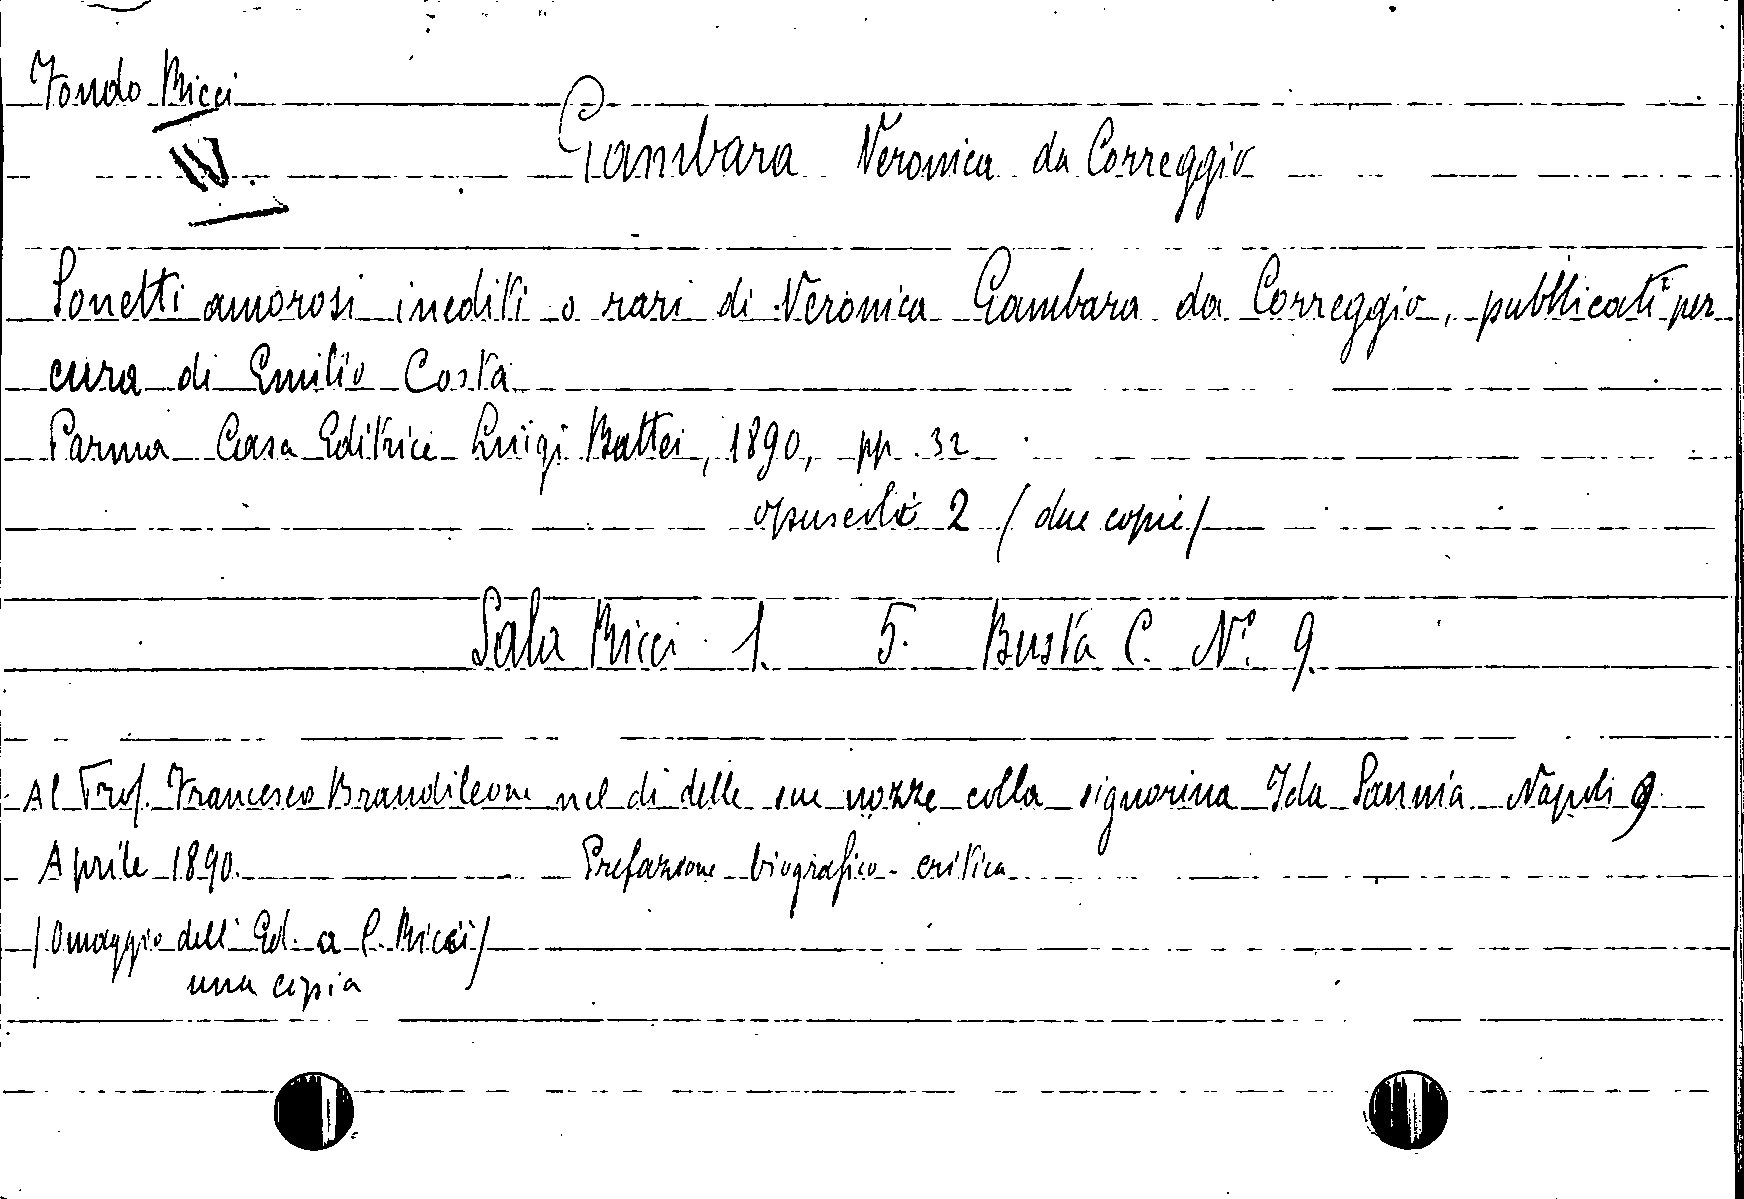 Fondo Ricci
IV.
Gambara Veronica da Correggio
Sonetti amorosi inediti o rari di Veronica Gambara da Correggio, pubblicati per
cura di Emilio Costa
Parma Casa Editrice Luigi Battei, 1890, pp. 32
opuscoli 2 (due copie)
Sala Ricci 1. 5. Busta C. N.° 9.
Al Prof. Francesco Brandileone nel dì delle sue nozze colla signorina Ida Sannia Napoli 9
Aprile 1890. Prefazione biografico-critica
(Omaggio dell'Ed. a C. Ricci)
una copia